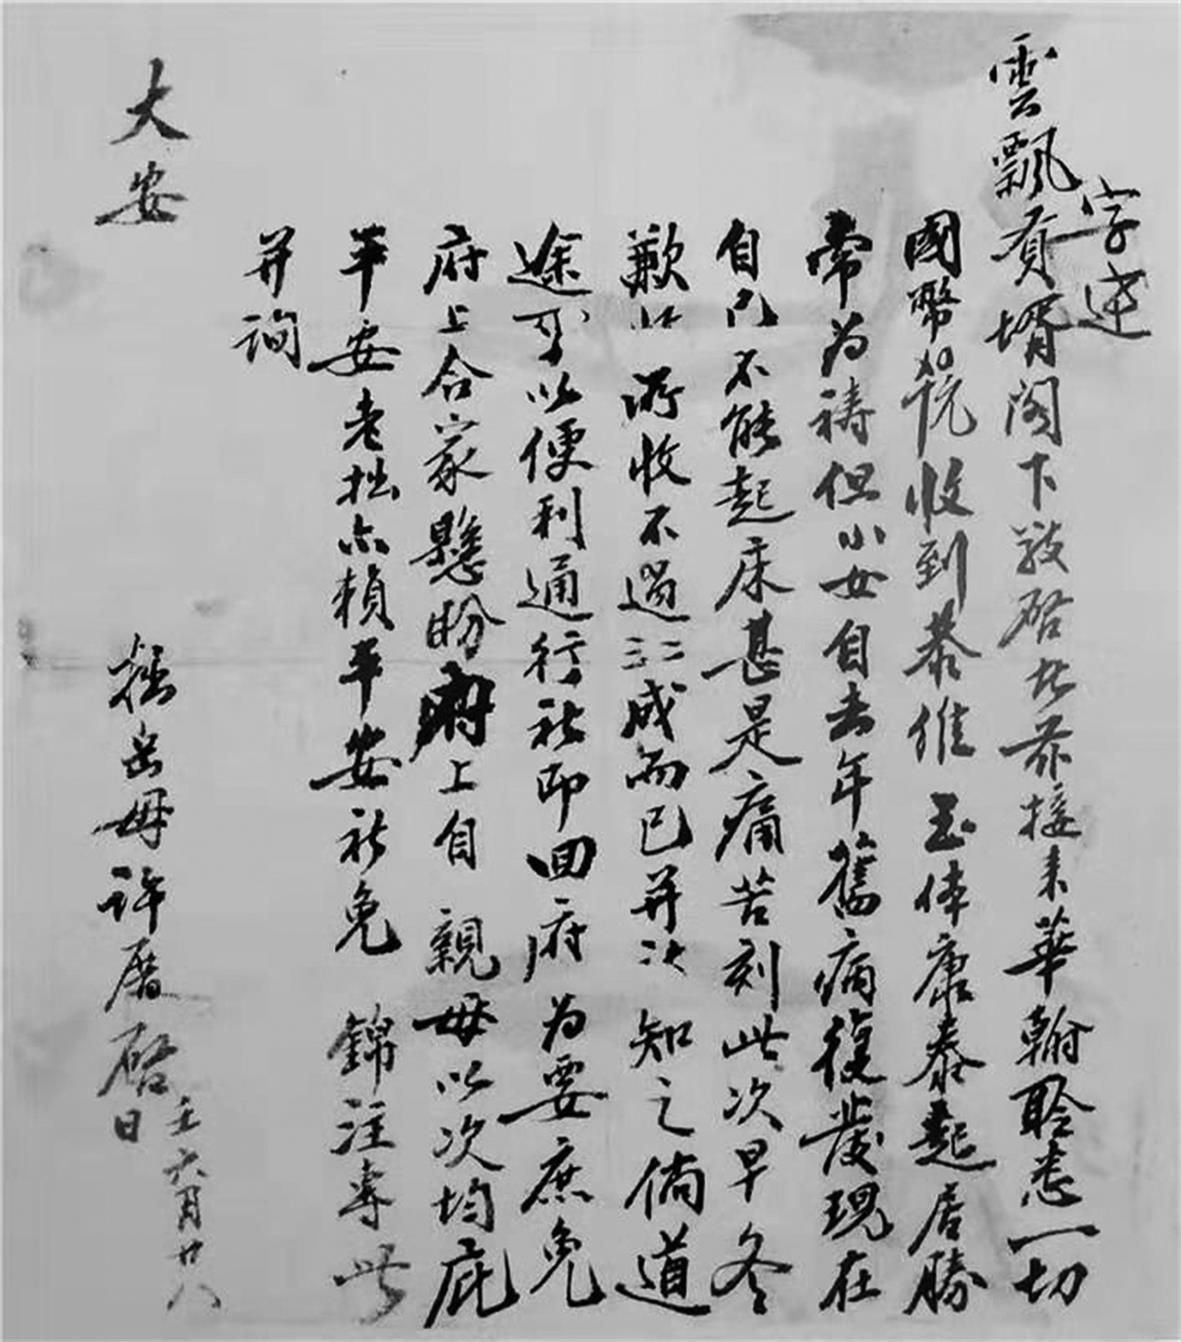 字達
雲飄賢壻閣下敬啓者茲接来華翰聆悉一切
國幣貳佰元收到恭維玉体康泰起居勝
常為禱但小女自去年舊病復發現在
自己不能起床甚是痛苦刻此次早冬
歉收所收不過三二成而已并以知之倘道
途可以便利通行祈即回府為要庶免
府上合家懸盼府上自親母以次均庇
平安老拙亦賴平安祈免錦注專此
并詢
大安
拙岳母許厝啓
六月廿八日